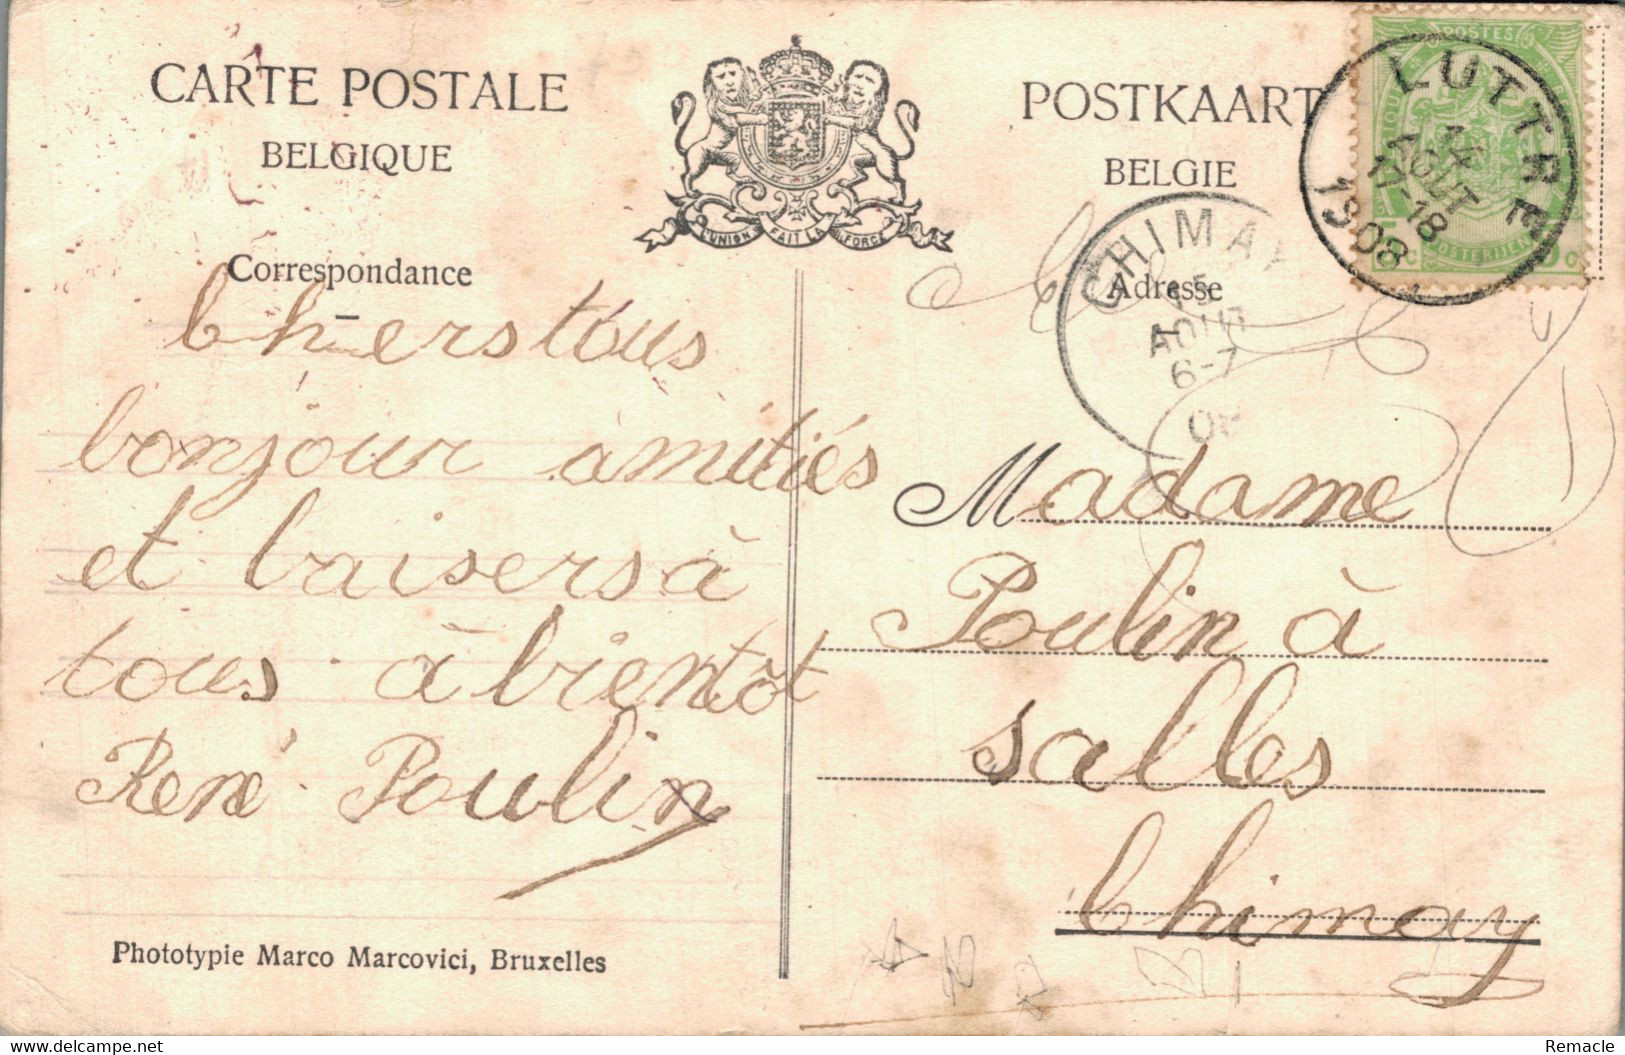 CARTE POSTALE
BELGIQUE
L'UNION FAIT LA FORCE
POSTKAART
BELGIE
POSTES
POSTERIJEN
LUTTRE
14
AOUT
17-18
1908
CHIMAY
15
AOUT
6-7
08
Correspondance
Adresse
Chers tous
bonjour amitiés
et baisers à
tous à bientôt
René Poulin
Madame
Poulin à
Salles
Chimay
Phototypie Marco Marcovici, Bruxelles
delcampe.net
Remacle